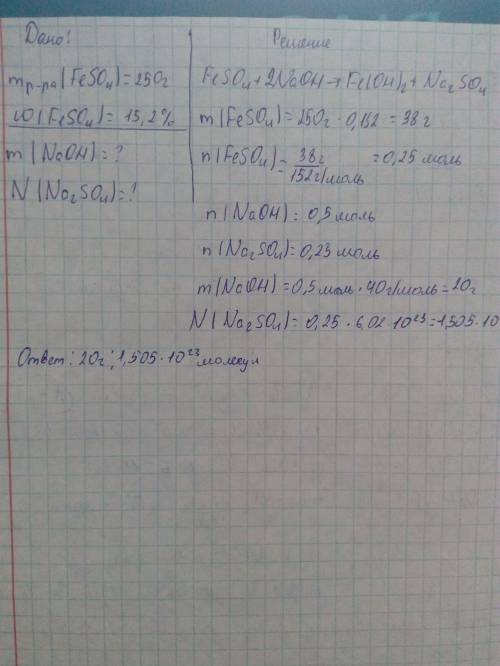 Дано:
m р-ра (FeSO₄) = 250г
ω (FeSO₄) = 15,2%
m (NaOH) = ?
N (Na₂SO₄) = ?
Решение
FeSO₄ + 2NaOH → Fe(OH)₂ + Na₂SO₄
m (FeSO₄) = 250г · 0,152 = 38 г
n (FeSO₄) = 38г / 152г/моль = 0,25 моль
n (NaOH) = 0,5 моль
n (Na₂SO₄) = 0,25 моль
m (NaOH) = 0,5 моль · 40г/моль = 20г
N (Na₂SO₄) = 0,25 · 6,02 · 10²³ = 1,505 · 10
Ответ: 20г; 1,505 · 10²³ молекул